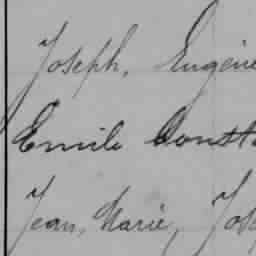 Joseph, Eugène
Emile Const
Jean, Marie, Jos